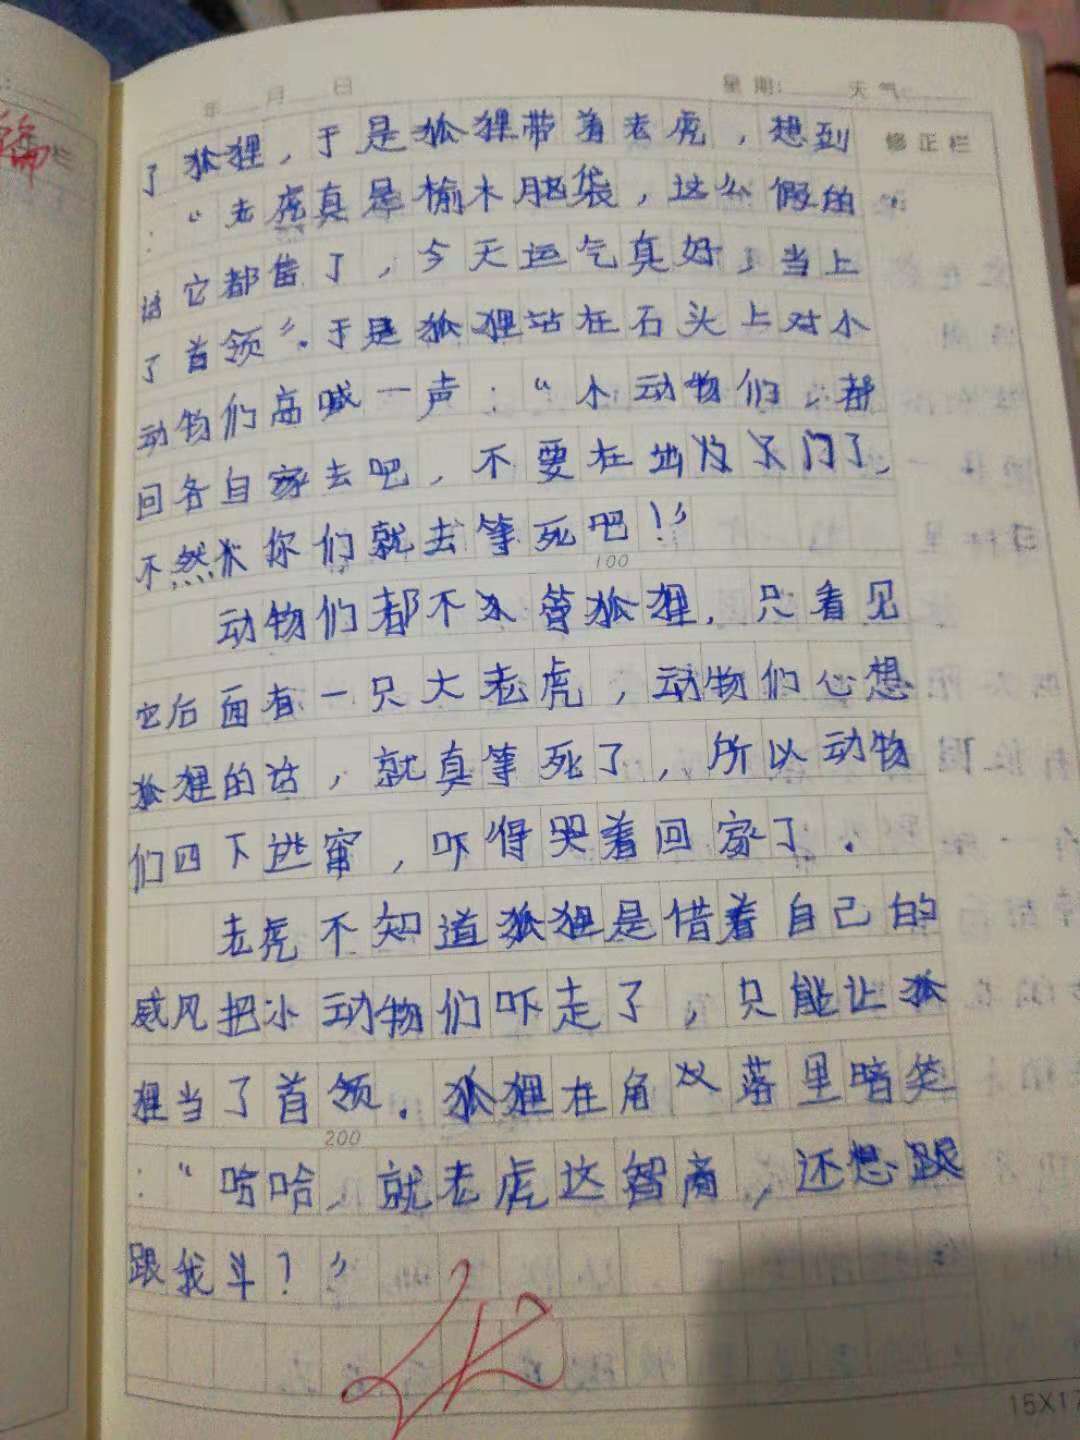 年 月 日 星期: 天气:
修正栏
了狐狸，于是狐狸带着老虎，想到
：“老虎真是榆木脑袋，这么假的
话它都信了，今天运气真好，当上
了首领”。于是狐狸站在石头上对小
动物们高喊一声：“小动物们，都
回各自家去吧，不要在出门了，
不然你们就去等死吧！”
100
动物们都不管狐狸，只看见
它后面有一只大老虎，动物们心想
狐狸的话，就真等死了，所以动物
们四下逃窜，吓得哭着回家了。
老虎不知道狐狸是借着自己的
威风把小动物们吓走了，只能让狐
狸当了首领。狐狸在角落里暗笑
200
：“哈哈，就老虎这智商，还想跟
跟我斗？”
优
15X17